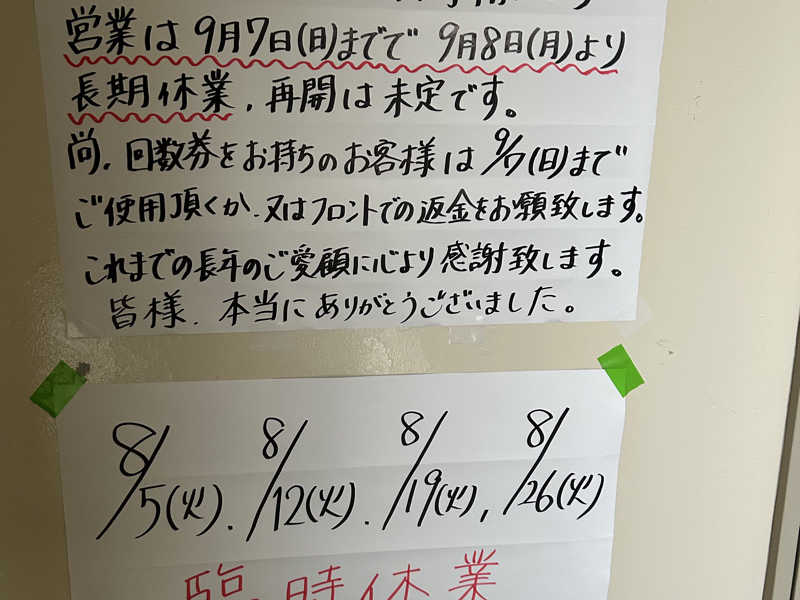 営業は9月7日(日)までで 9月8日(月)より
長期休業，再開は未定です。
尚，回数券をお持ちのお客様は 9/7(日)まで
ご使用頂くか、又はフロントでの返金をお願致します。
これまでの長年のご愛顧に心より感謝致します。
皆様、本当にありがとうございました。
8/5(火)．8/12(火)．8/19(火)，8/26(火)
臨時休業